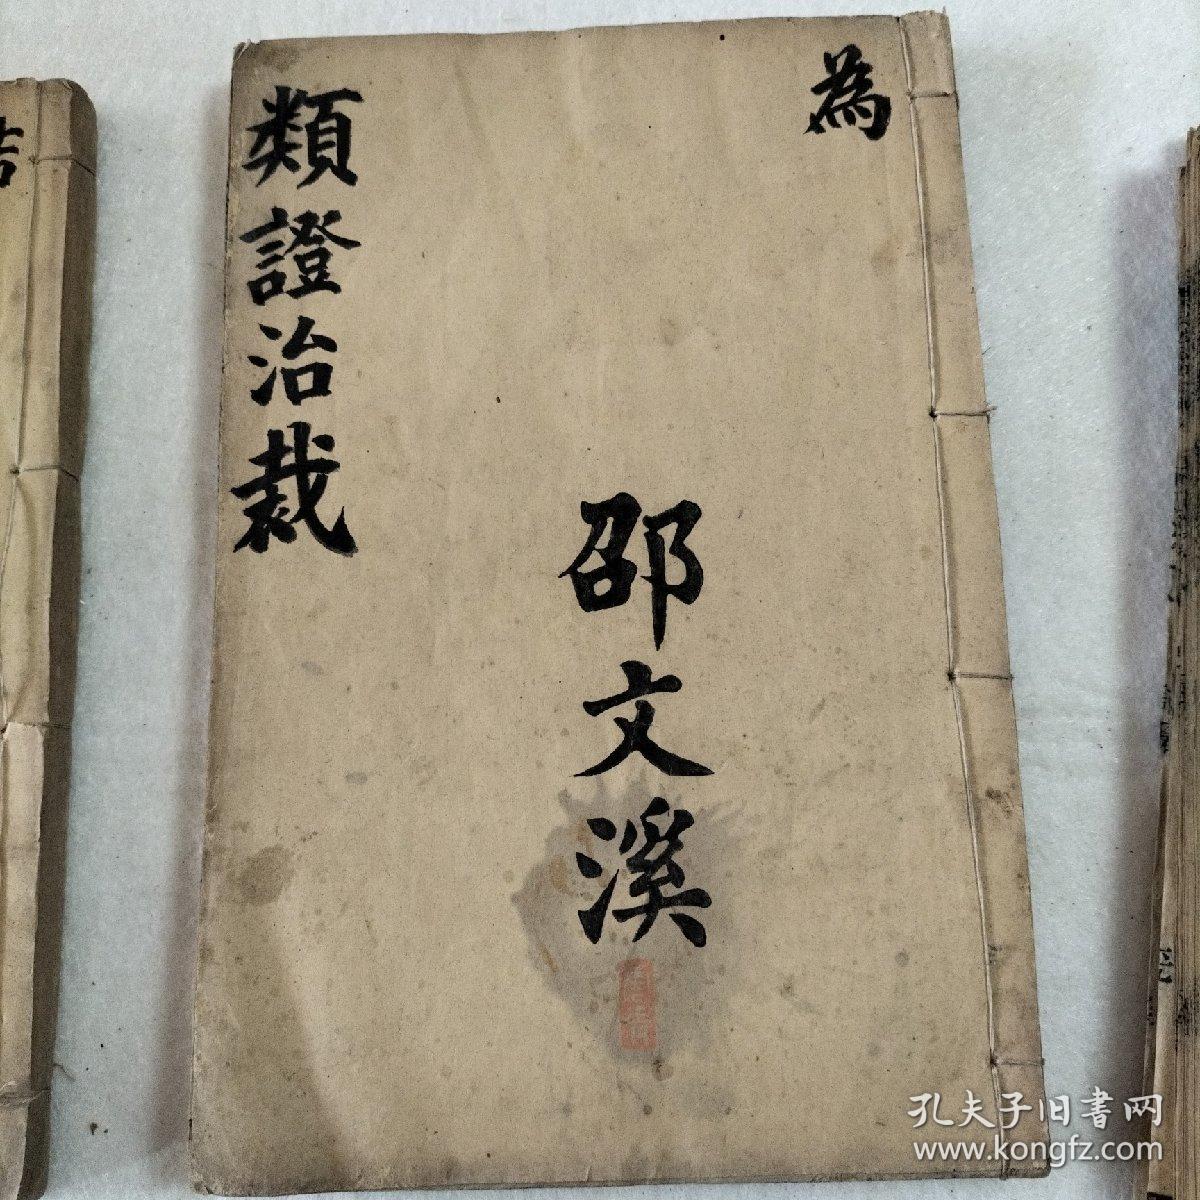 為
類證治裁
邵文溪
孔夫子旧書网
www.kongfz.com